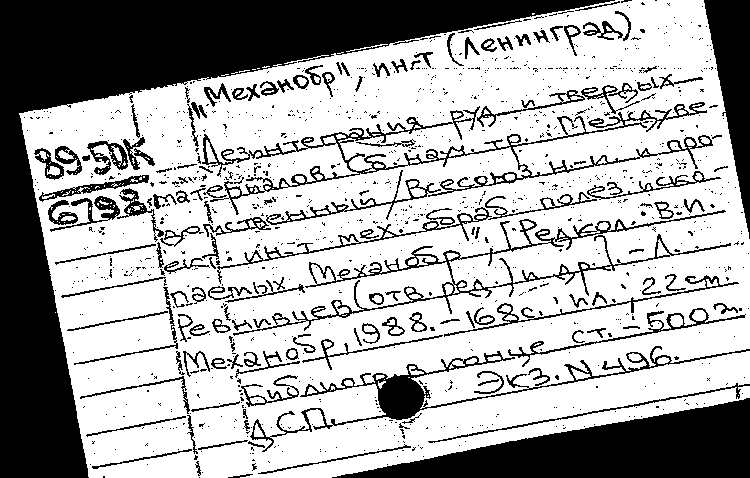 "Механобр", ин-т (Ленинград).
89-50К
6798
Дезинтеграция руд и твердых
материалов: Сб. науч. тр. Междуве-
домственный / Всесоюз. н-и. и про-
ект. ин-т мех. обраб. полез. иско-
паемых "Механобр", [Редкол.: В.И.
Ревнивцев (отв. ред.) и др.]. - Л.:
Механобр, 1988. - 168с.: ил.; 22см.
Библиогр. в конце ст. - 500э.
ДСП. Экз. N 496.